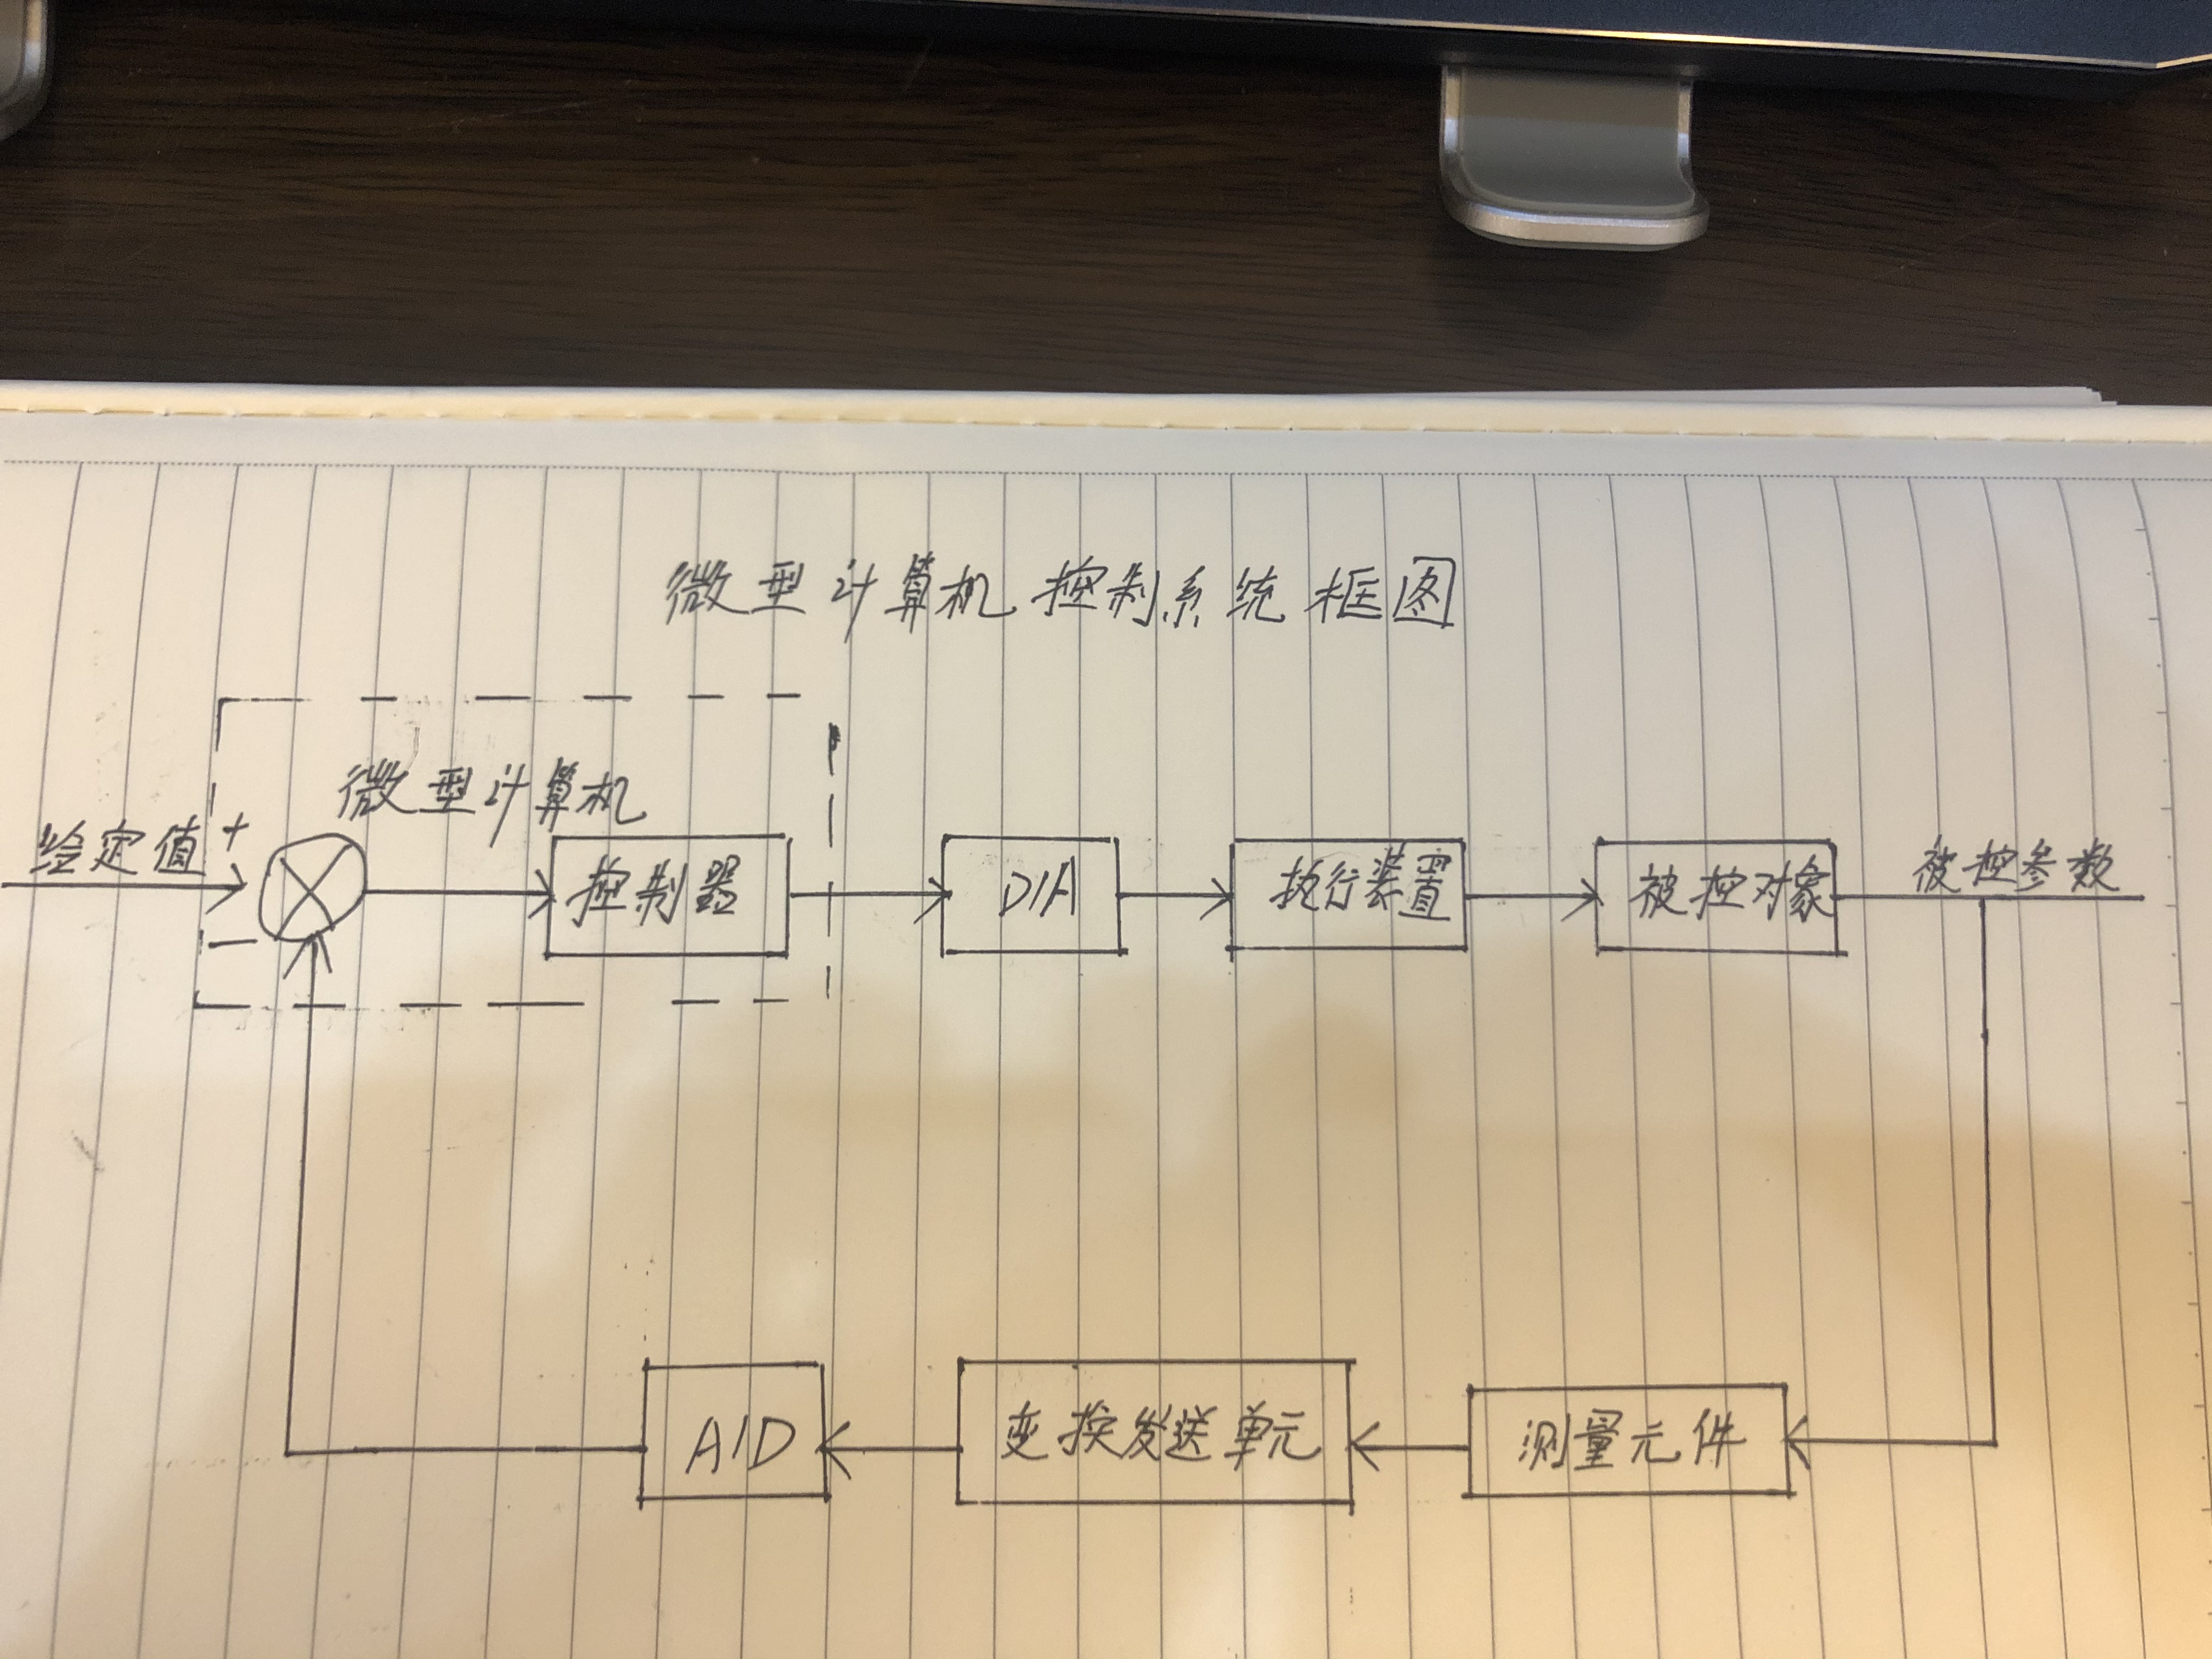 微型计算机控制系统框图
微型计算机
给定值 +
控制器
D/A
执行装置
被控对象
被控参数
A/D
变换发送单元
测量元件